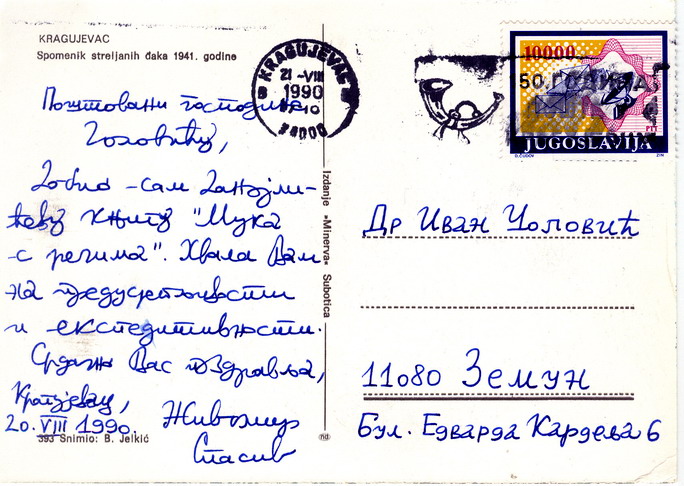 KRAGUJEVAC
Spomenik streljanih đaka 1941. godine
Поштовани господине
Чоловићу,
Добио сам занимљи-
ћеву књигу "Мука
с речима". Хвала Вам
на предусретљивости
и експедитивности.
Срдачно Вас поздравља,
Крагујевац,
20. VIII 1990. Живомир
Спасић
393 Snimio: B. Jelkić
Izdanje »Minerva« Subotica
KRAGUJEVAC
21 -VIII
1990
34000
10000
50
PTT
JUGOSLAVIJA
Др Иван Чоловић
11080 Земун
Бул. Едварда Кардеља 6